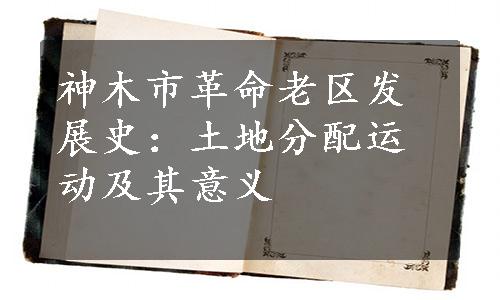 神木市革命老区发
展史：土地分配运
动及其意义